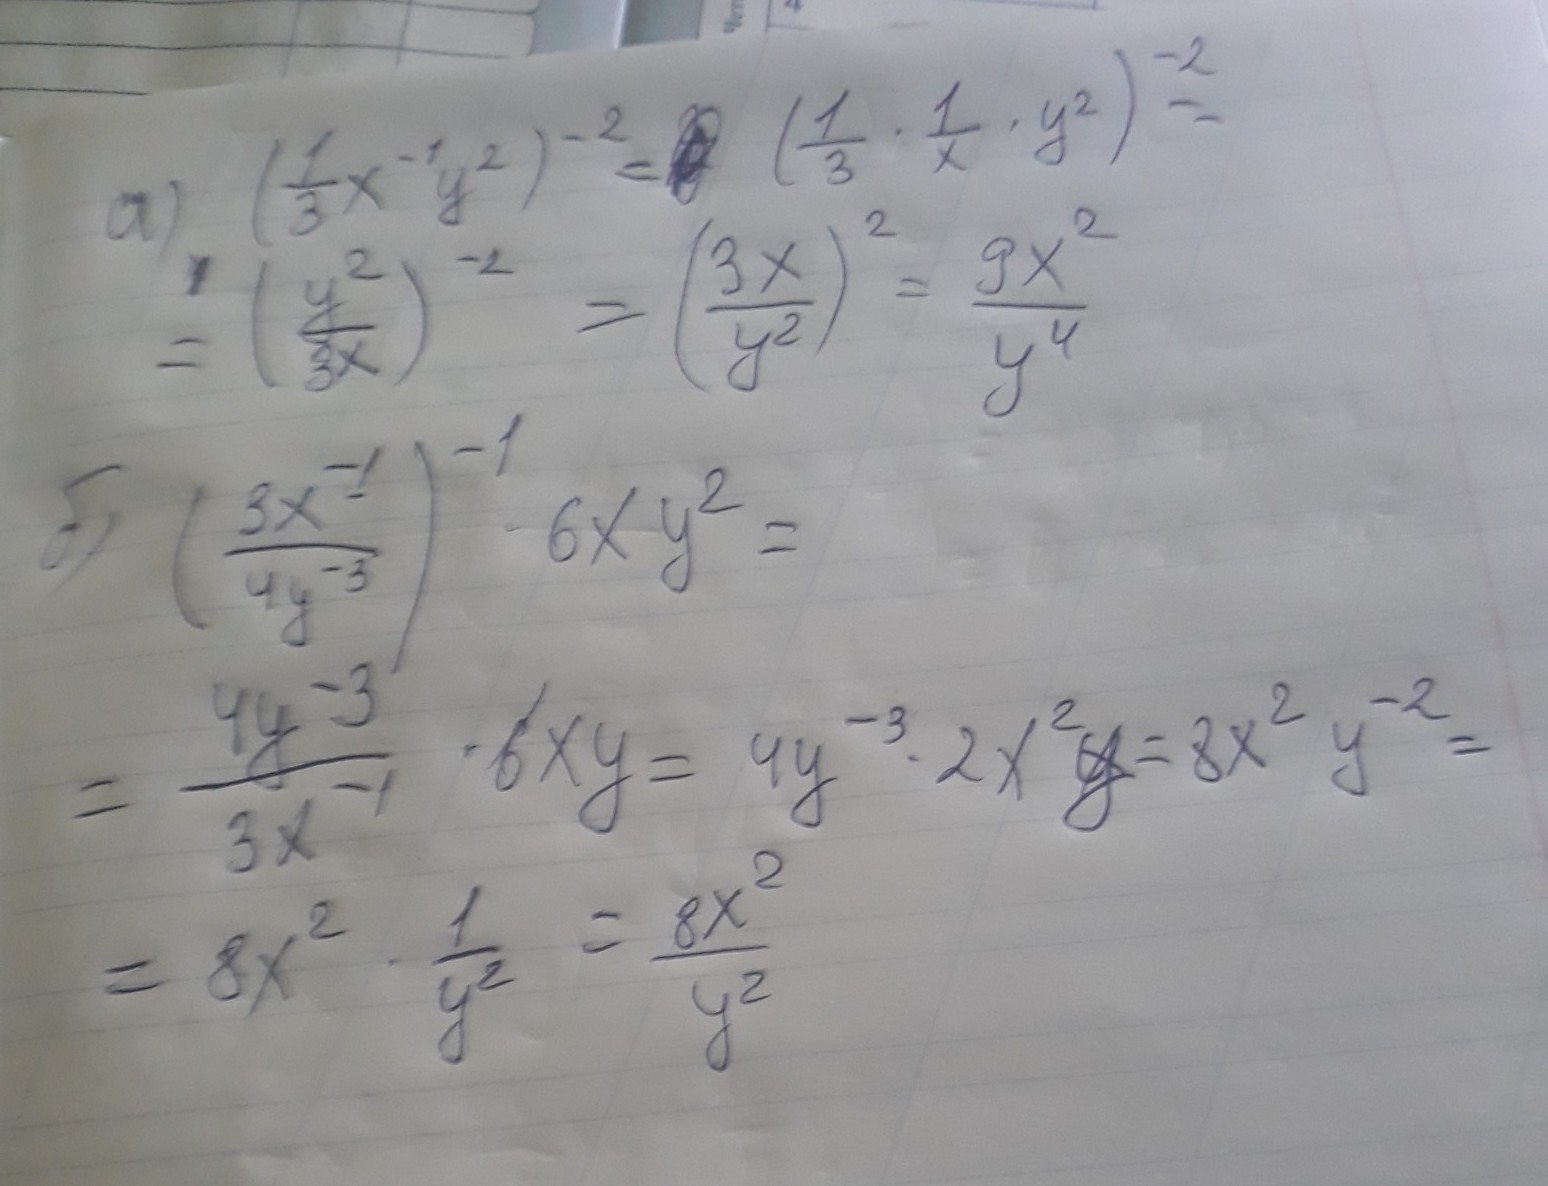 а) (1/3 x⁻¹y²)⁻² = (1/3 · 1/x · y²)⁻² =
= (y²/3x)⁻² = (3x/y²)² = 9x²/y⁴
б) (3x⁻¹/4y⁻³)⁻¹ · 6xy² =
= 4y⁻³/3x⁻¹ · 6xy = 4y⁻³ · 2x²y = 8x² y⁻² =
= 8x² · 1/y² = 8x²/y²